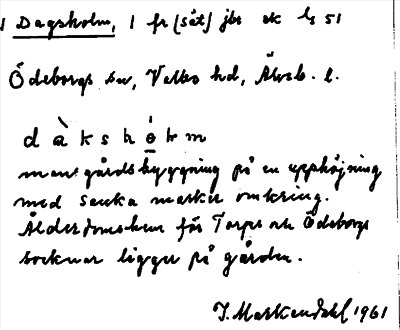 Dagsholm, 1 fr (sät) jbr ek bs 51
Ödeborgs sn, Valbo hd, Älvsb. l.
dàkshólm
mangårdsbyggning på en upphöjning
med sanka marker omkring.
Ålderdomshem för Torps och Ödeborgs
socknar ligger på gården.
J. Markendahl 1961